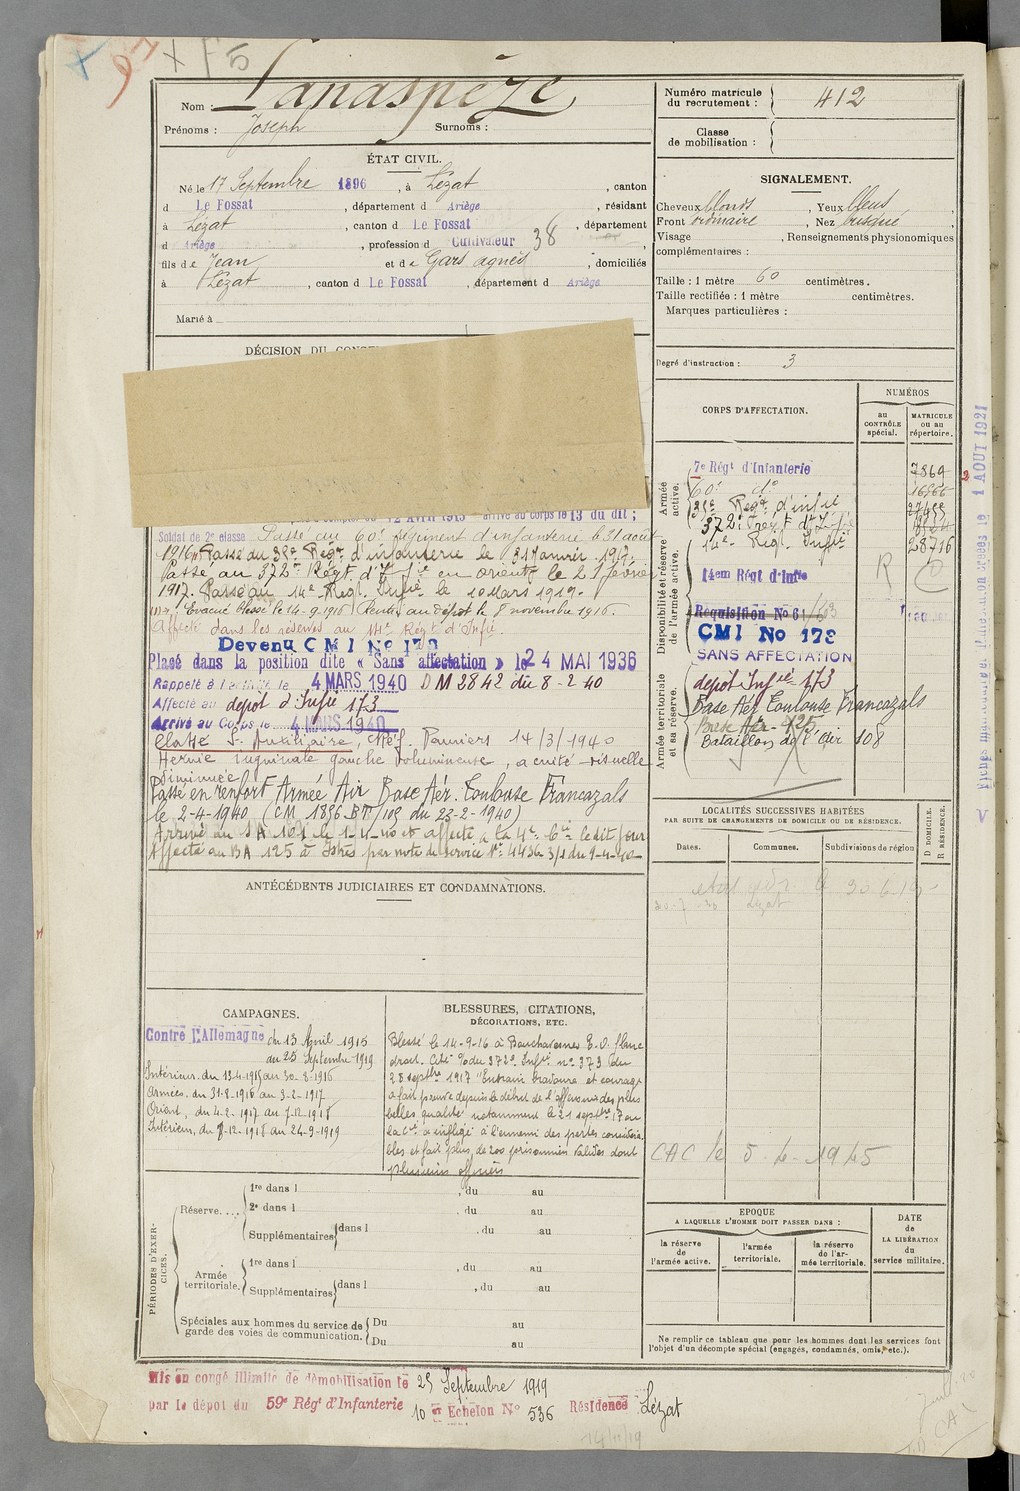 Nom : Lanaspèze
Prénoms : Joseph Surnoms :
Numéro matricule du recrutement : 412
Classe de mobilisation :
ÉTAT CIVIL.
Né le 17 Septembre 1896, à Lézat, canton
d Le Fossat, département d Ariège, résidant
à Lézat, canton d Le Fossat, département
d Ariège, profession d Cultivateur 38,
fils de Jean et de Gars agnès, domiciliés
à Lézat, canton d Le Fossat, département d Ariège
Marié à
SIGNALEMENT.
Cheveux blonds, Yeux bleus,
Front ordinaire, Nez busqué,
Visage, Renseignements physionomiques
complémentaires :
Taille : 1 mètre 60 centimètres.
Taille rectifiée : 1 mètre centimètres.
Marques particulières :
Degré d'instruction : 3
DÉCISION DU
12 Avril 1915 arrivé au corps le 13 du dit ;
Soldat de 2e classe Passé au 60e Régiment d'infanterie le 31 août
1916. Passé au 35e Regt d'infanterie le 21 Janvier 1917.
Passé au 372e Régt d'Infie en orient le 21 février
1917. Passé au 14e Regt Infie le 10 Mars 1919.
Evacué Blessé le 14-9-1916 Rentré au dépôt le 8 novembre 1916.
Affecté dans les réserves au 14e Régt d'Infie.
Devenu CMI No 178
Placé dans la position dite « Sans affectation » le 24 MAI 1936
Rappelé à l'activité le 4 MARS 1940 DM 2842 du 8-2-40
Affecté au depot d'Infie 173
Arrivé au Corps le 4 MARS 1940
Classé S. Auxiliaire, Réf. Pamiers 14/3/1940
Hernie inguinale gauche volumineuse, acuité visuelle
diminuée
Passé en renfort Armée Air Base Aér. Toulouse Francazals
le 2-4-1940 (CM 1356 BT/109 du 23-2-1940)
Arrivé au SA 101 le 1-4-40 et affecté à la 4e Cie le dit jour
Affecté au BA 125 à Istres par note de service No 4436 3/1 du 9-4-40
CORPS D'AFFECTATION.
NUMÉROS
au CONTRÔLE spécial.
MATRICULE ou au répertoire.
Armée active.
7e Régt d'Infanterie 7869
60e do
35e Regt d'infie
372e Regt d'Infie
14e Regt Infie 28716
Disponibilité et réserve de l'armée active.
14em Régt d'Infie R
Réquisition No 61
CMI No 178
SANS AFFECTATION
Armée territoriale et sa réserve.
depot Infie 173
Base Aér Toulouse Francazals
Base Aér 125
Bataillon de l'Air 108
LOCALITÉS SUCCESSIVES HABITÉES
PAR SUITE DE CHANGEMENTS DE DOMICILE OU DE RÉSIDENCE.
Dates. Communes. Subdivisions de région
D DOMICILE. R RÉSIDENCE.
Lézat
CAC le 5-4-1945
ANTÉCÉDENTS JUDICIAIRES ET CONDAMNATIONS.
CAMPAGNES.
Contre l'Allemagne du 13 Avril 1915
au 25 Septembre 1919
Intérieur du 13-4-1915 au 30-8-1916
Armées du 31-8-1916 au 3-2-1917
Orient, du 4-2-1917 au 7-12-1918
Intérieur, du 8-12-1918 au 24-9-1919
BLESSURES, CITATIONS,
DÉCORATIONS, ETC.
Blessé le 14-9-16 à Bouchavesnes E.O. flanc
droit. Cité O/ du 372e Infie no 373 du
28 septbre 1917 "Entrain bravoure et courage
a fait preuve depuis le début de l'offensive des plus
belles qualités notamment le 21 septbre 17 où
la Cie a infligé à l'ennemi des pertes considéra
bles et fait plus de 200 prisonniers valides dont
plusieurs officiers
PÉRIODES D'EXERCICES.
Réserve....
1re dans l , du au
2e dans l , du au
Supplémentaires dans l , du au
Armée territoriale.
1re dans l , du au
Supplémentaires dans l , du au
Spéciales aux hommes du service de garde des voies de communication.
Du au
Du au
EPOQUE
A LAQUELLE L'HOMME DOIT PASSER DANS :
la réserve de l'armée active.
l'armée territoriale.
la réserve de l'armée territoriale.
DATE de LA LIBÉRATION du service militaire.
Ne remplir ce tableau que pour les hommes dont les services font
l'objet d'un décompte spécial (engagés, condamnés, omis, etc.).
Mis en congé illimité de démobilisation le 25 Septembre 1919
par le dépôt du 59e Régt d'Infanterie 10 em Echelon No 536 Résidence Lézat
14/11/19
1 AOUT 1921